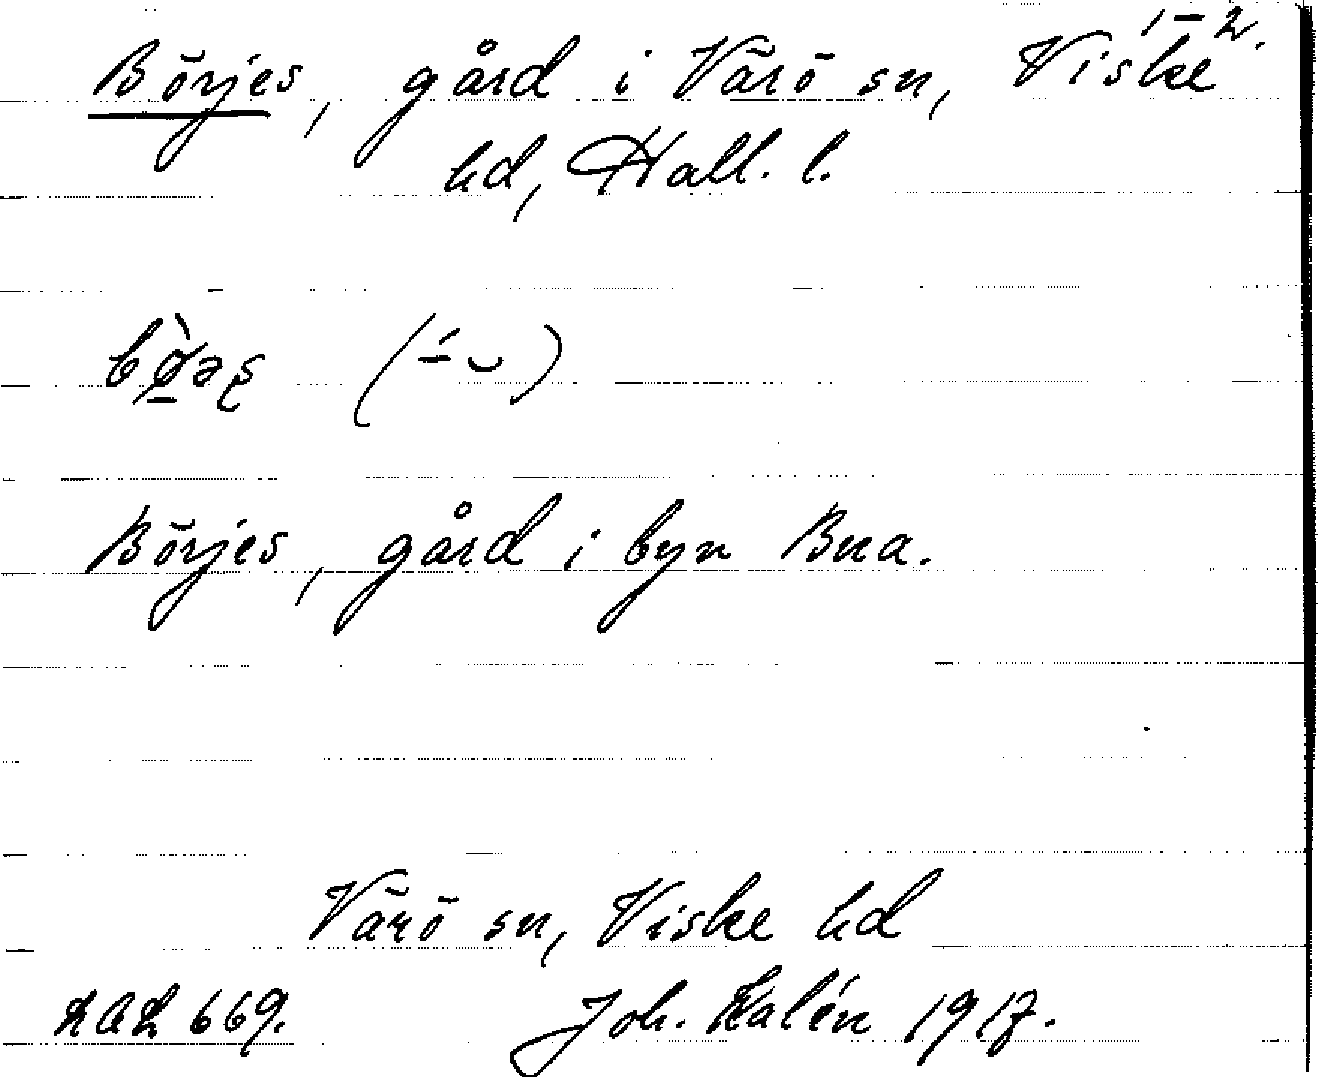 1-2.
Börjes, gård i Värö sn, Viske
hd, Hall. l.
(-́ ⏑)
Börjes, gård i byn Bua.
Värö sn, Viske hd
LAL 669. Joh. Kalén 1917.